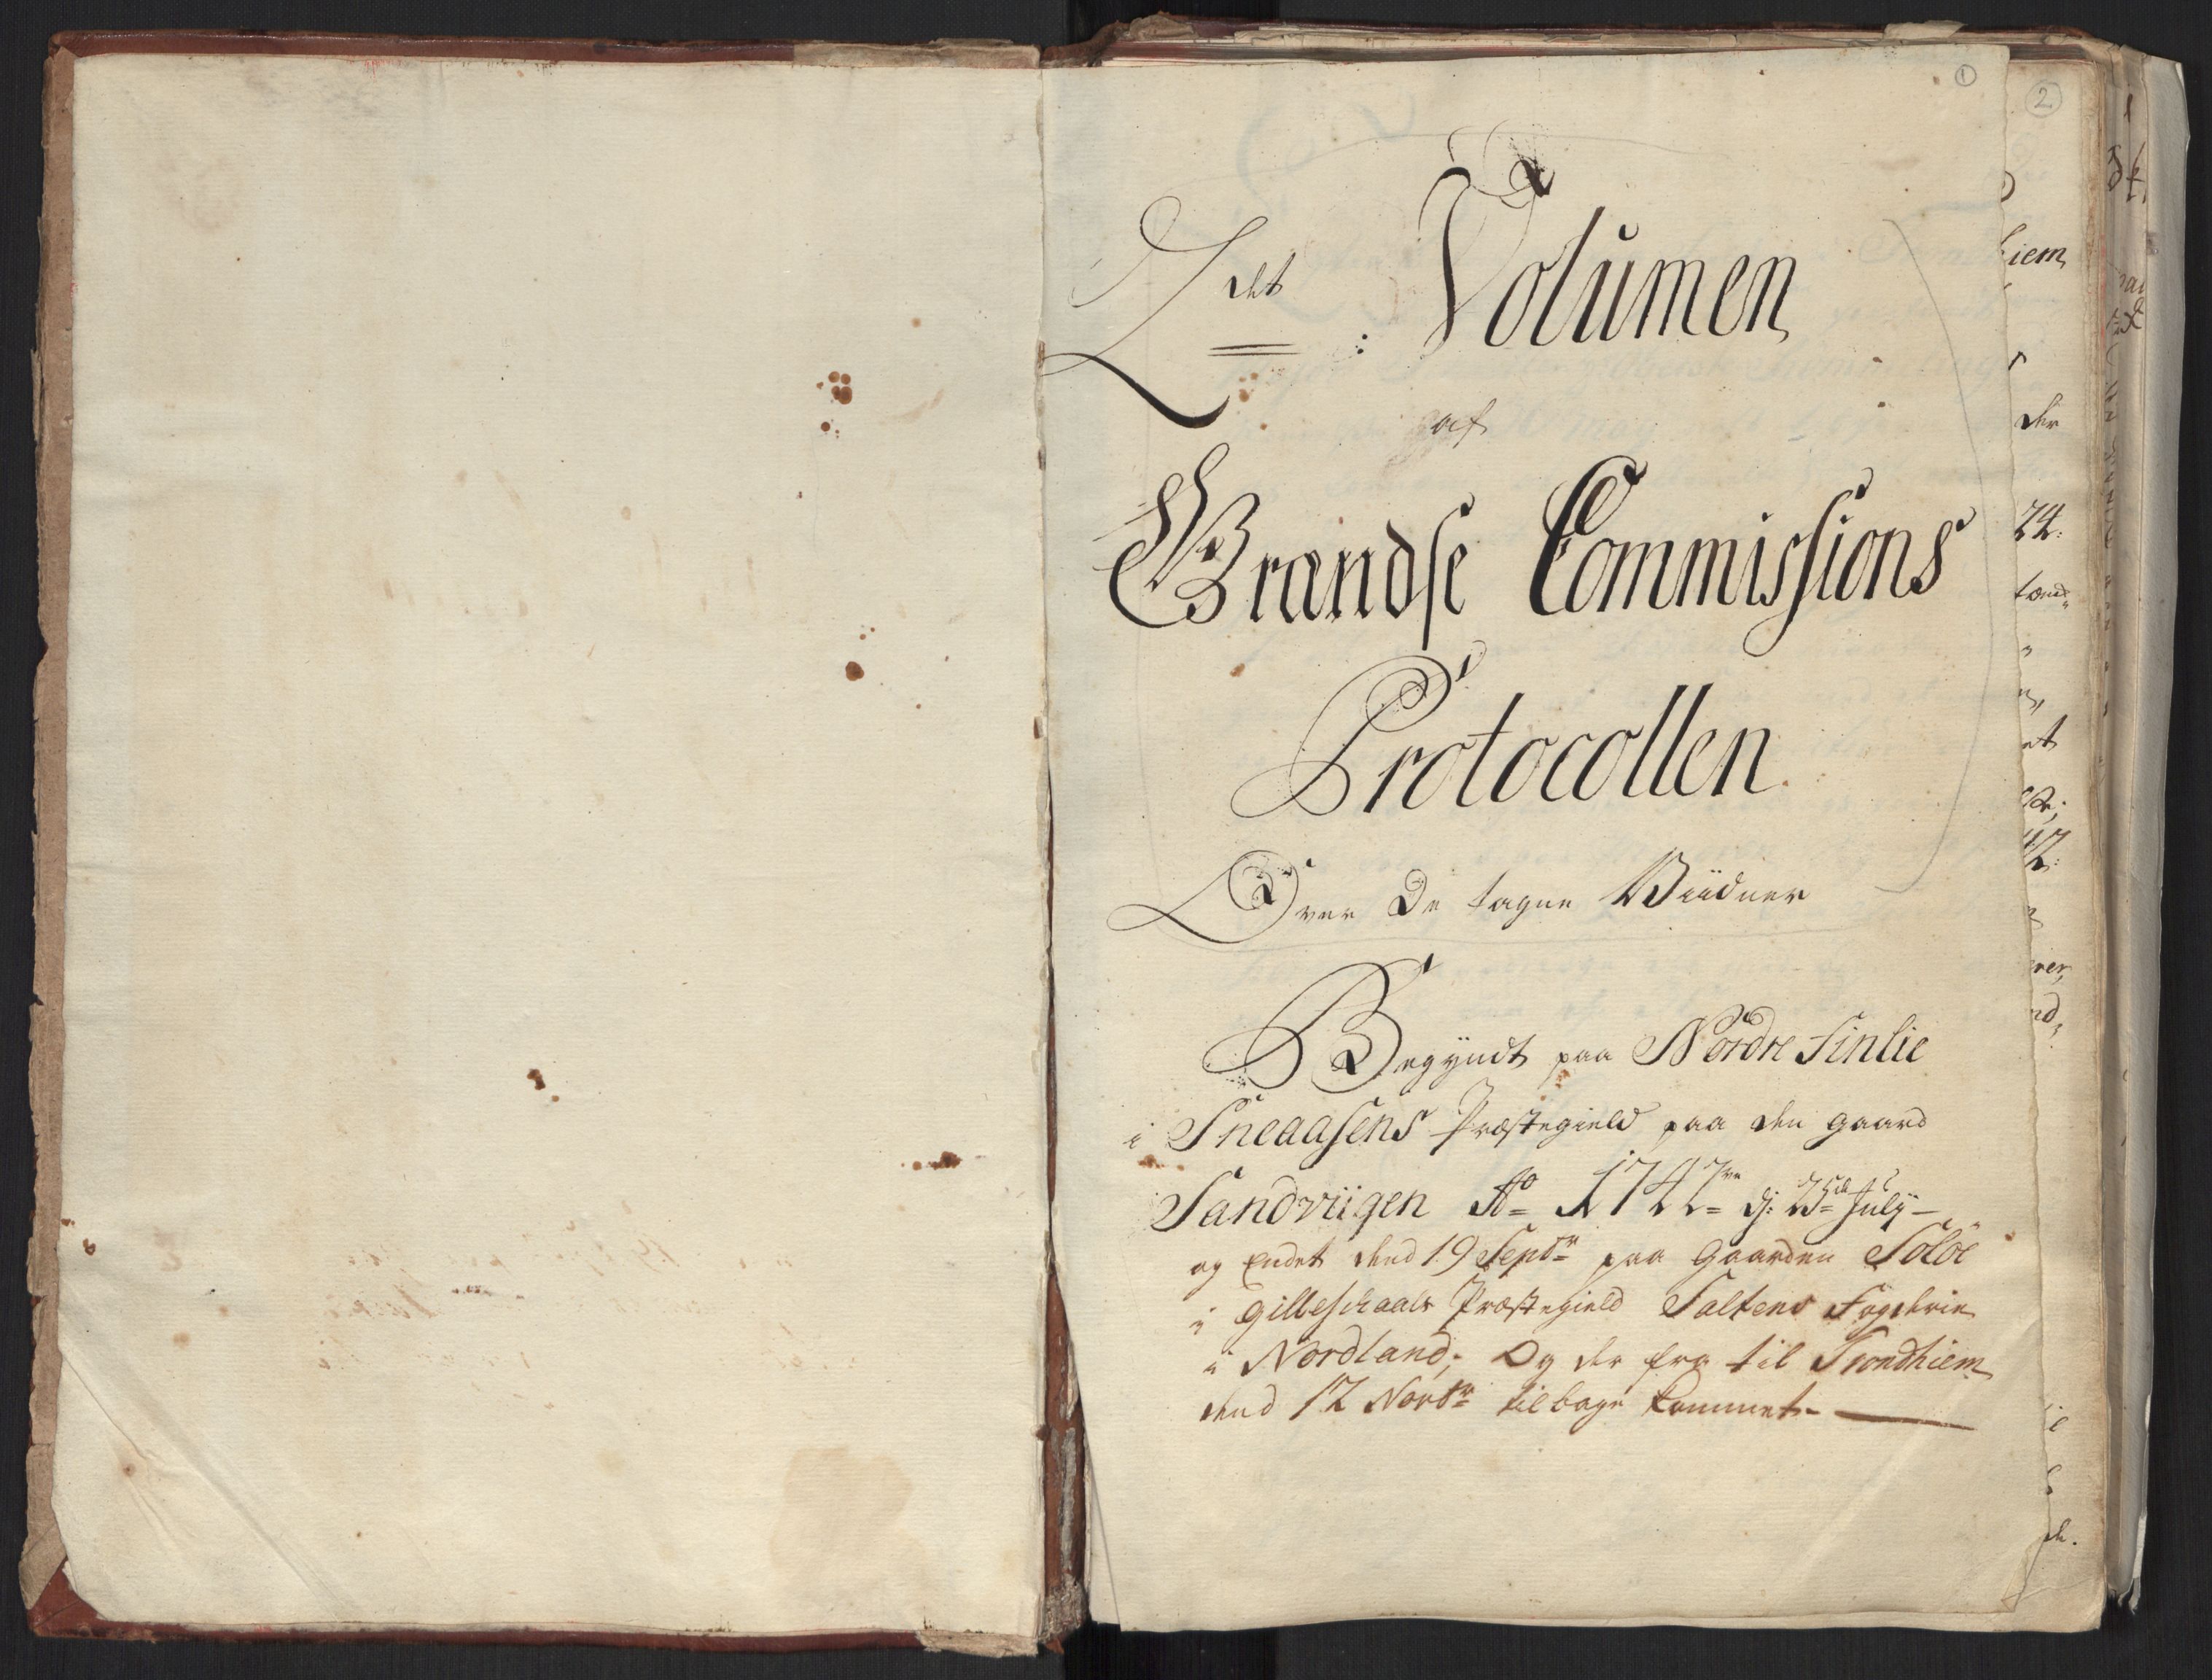 2 det Volumen
af
Grændse Commissions
Protocollen
Over De tagne Viidner
Begyndt paa Nordre Finlie
i Sneaasens Præstegield paa den gaard
Sandviigen Ao 1742 d: 25de July
og Endet dend 19 Septr paa Gaarden Soløe
i Gilleschaals Præstegield Saltens Fogderie
i Nordland; Og der fra til Trondhiem
dend 12 Novbr tilbage kommet
1
2
iem
der
24:
et
12: